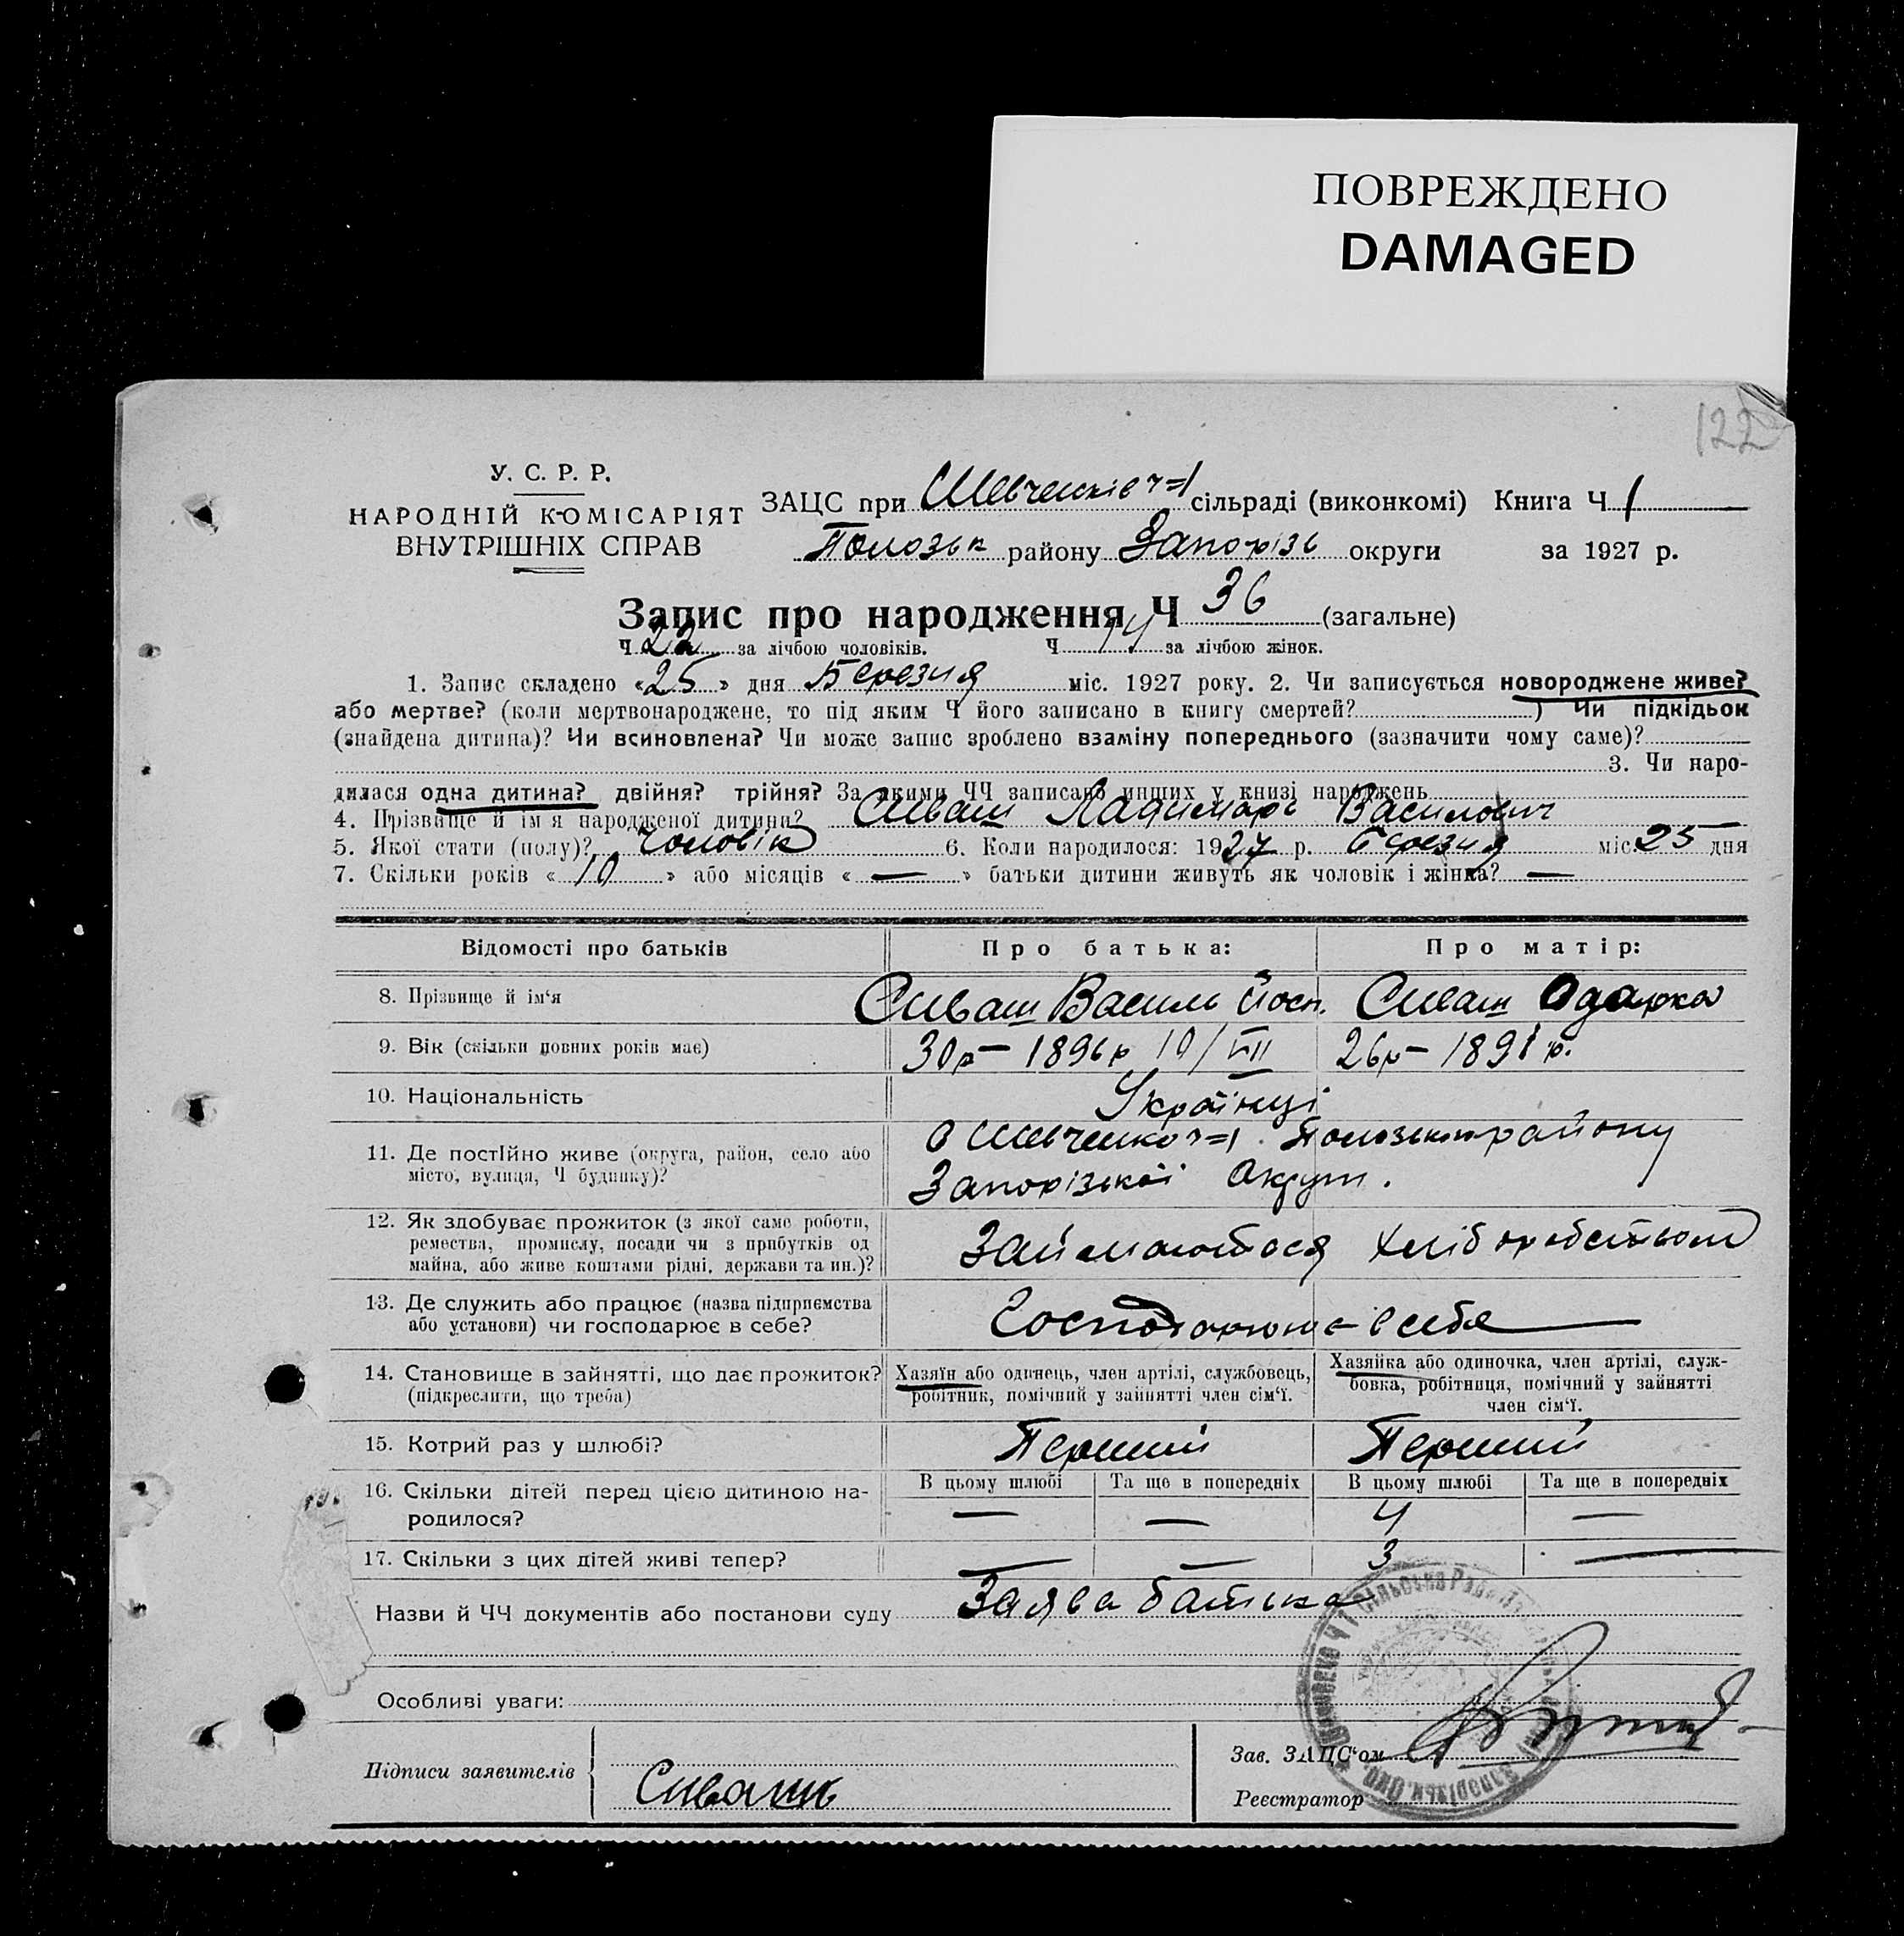 ПОВРЕЖДЕНО
DAMAGED
122
У. С. Р. Р.
НАРОДНІЙ КОМІСАРІЯТ
ВНУТРІШНІХ СПРАВ
ЗАЦС при Шевченків ч=1 сільраді (виконкомі) Книга Ч 1
Полозьк району Запорізь округи за 1927 р.
Запис про народження Ч 36 (загальне)
Ч 22 за лічбою чоловіків. Ч 14 за лічбою жінок.
1. Запис складено «25» дня Березня міс. 1927 року. 2. Чи записується новороджене живе?
або мертве? (коли мертвонароджене, то під яким Ч його записано в книгу смертей? ) Чи підкідьок
(знайдена дитина)? Чи всиновлена? Чи може запис зроблено взаміну попереднього (зазначити чому саме)?
3. Чи наро-
дилася одна дитина? двійня? трійня? За якими ЧЧ записано инших у книзі народжень
4. Прізвище й ім'я народженої дитини? Сиваш Ладимарь Василович
5. Якої стати (полу)? Чоловік 6. Коли народилося: 1927 р. Березня міс. 25 дня
7. Скільки років «10» або місяців «—» батьки дитини живуть як чоловік і жінка? —
Відомості про батьків Про батька: Про матір:
8. Прізвище й ім'я Сиваш Василь Йосп. Сиваш Одарка
9. Вік (скільки повних років має) 30р — 1896р 10/VII 26р — 1891 р.
10. Національність Українці
11. Де постійно живе (округа, район, село або
місто, вулиця, Ч будинку)?
с Шевченко ч=1 Полозьком району
Запорізької Округи.
12. Як здобуває прожиток (з якої саме роботи,
ремества, промислу, посади чи з прибутків од
майна, або живе коштами рідні, держави та ин.)?
Займаються хліборобством
13. Де служить або працює (назва підприємства
або установи) чи господарює в себе?
Господарюют в себе
14. Становище в зайнятті, що дає прожиток?
(підкреслити, що треба)
Хазяїн або одинець, член артілі, службовець,
робітник, помічний у зайнятті член сім'ї.
Хазяйка або одиночка, член артілі, служ-
бовка, робітниця, помічний у зайнятті
член сім'ї.
15. Котрий раз у шлюбі? Перший Перший
16. Скільки дітей перед цією дитиною на-
родилося?
В цьому шлюбі Та ще в попередніх В цьому шлюбі Та ще в попередніх
— — 4 —
17. Скільки з цих дітей живі тепер? — — 3 —
Назви й ЧЧ документів або постанови суду Заява батька
Особливі уваги:
Підписи заявителів Сивашь
Зав. ЗАЦС'ом
Реєстратор